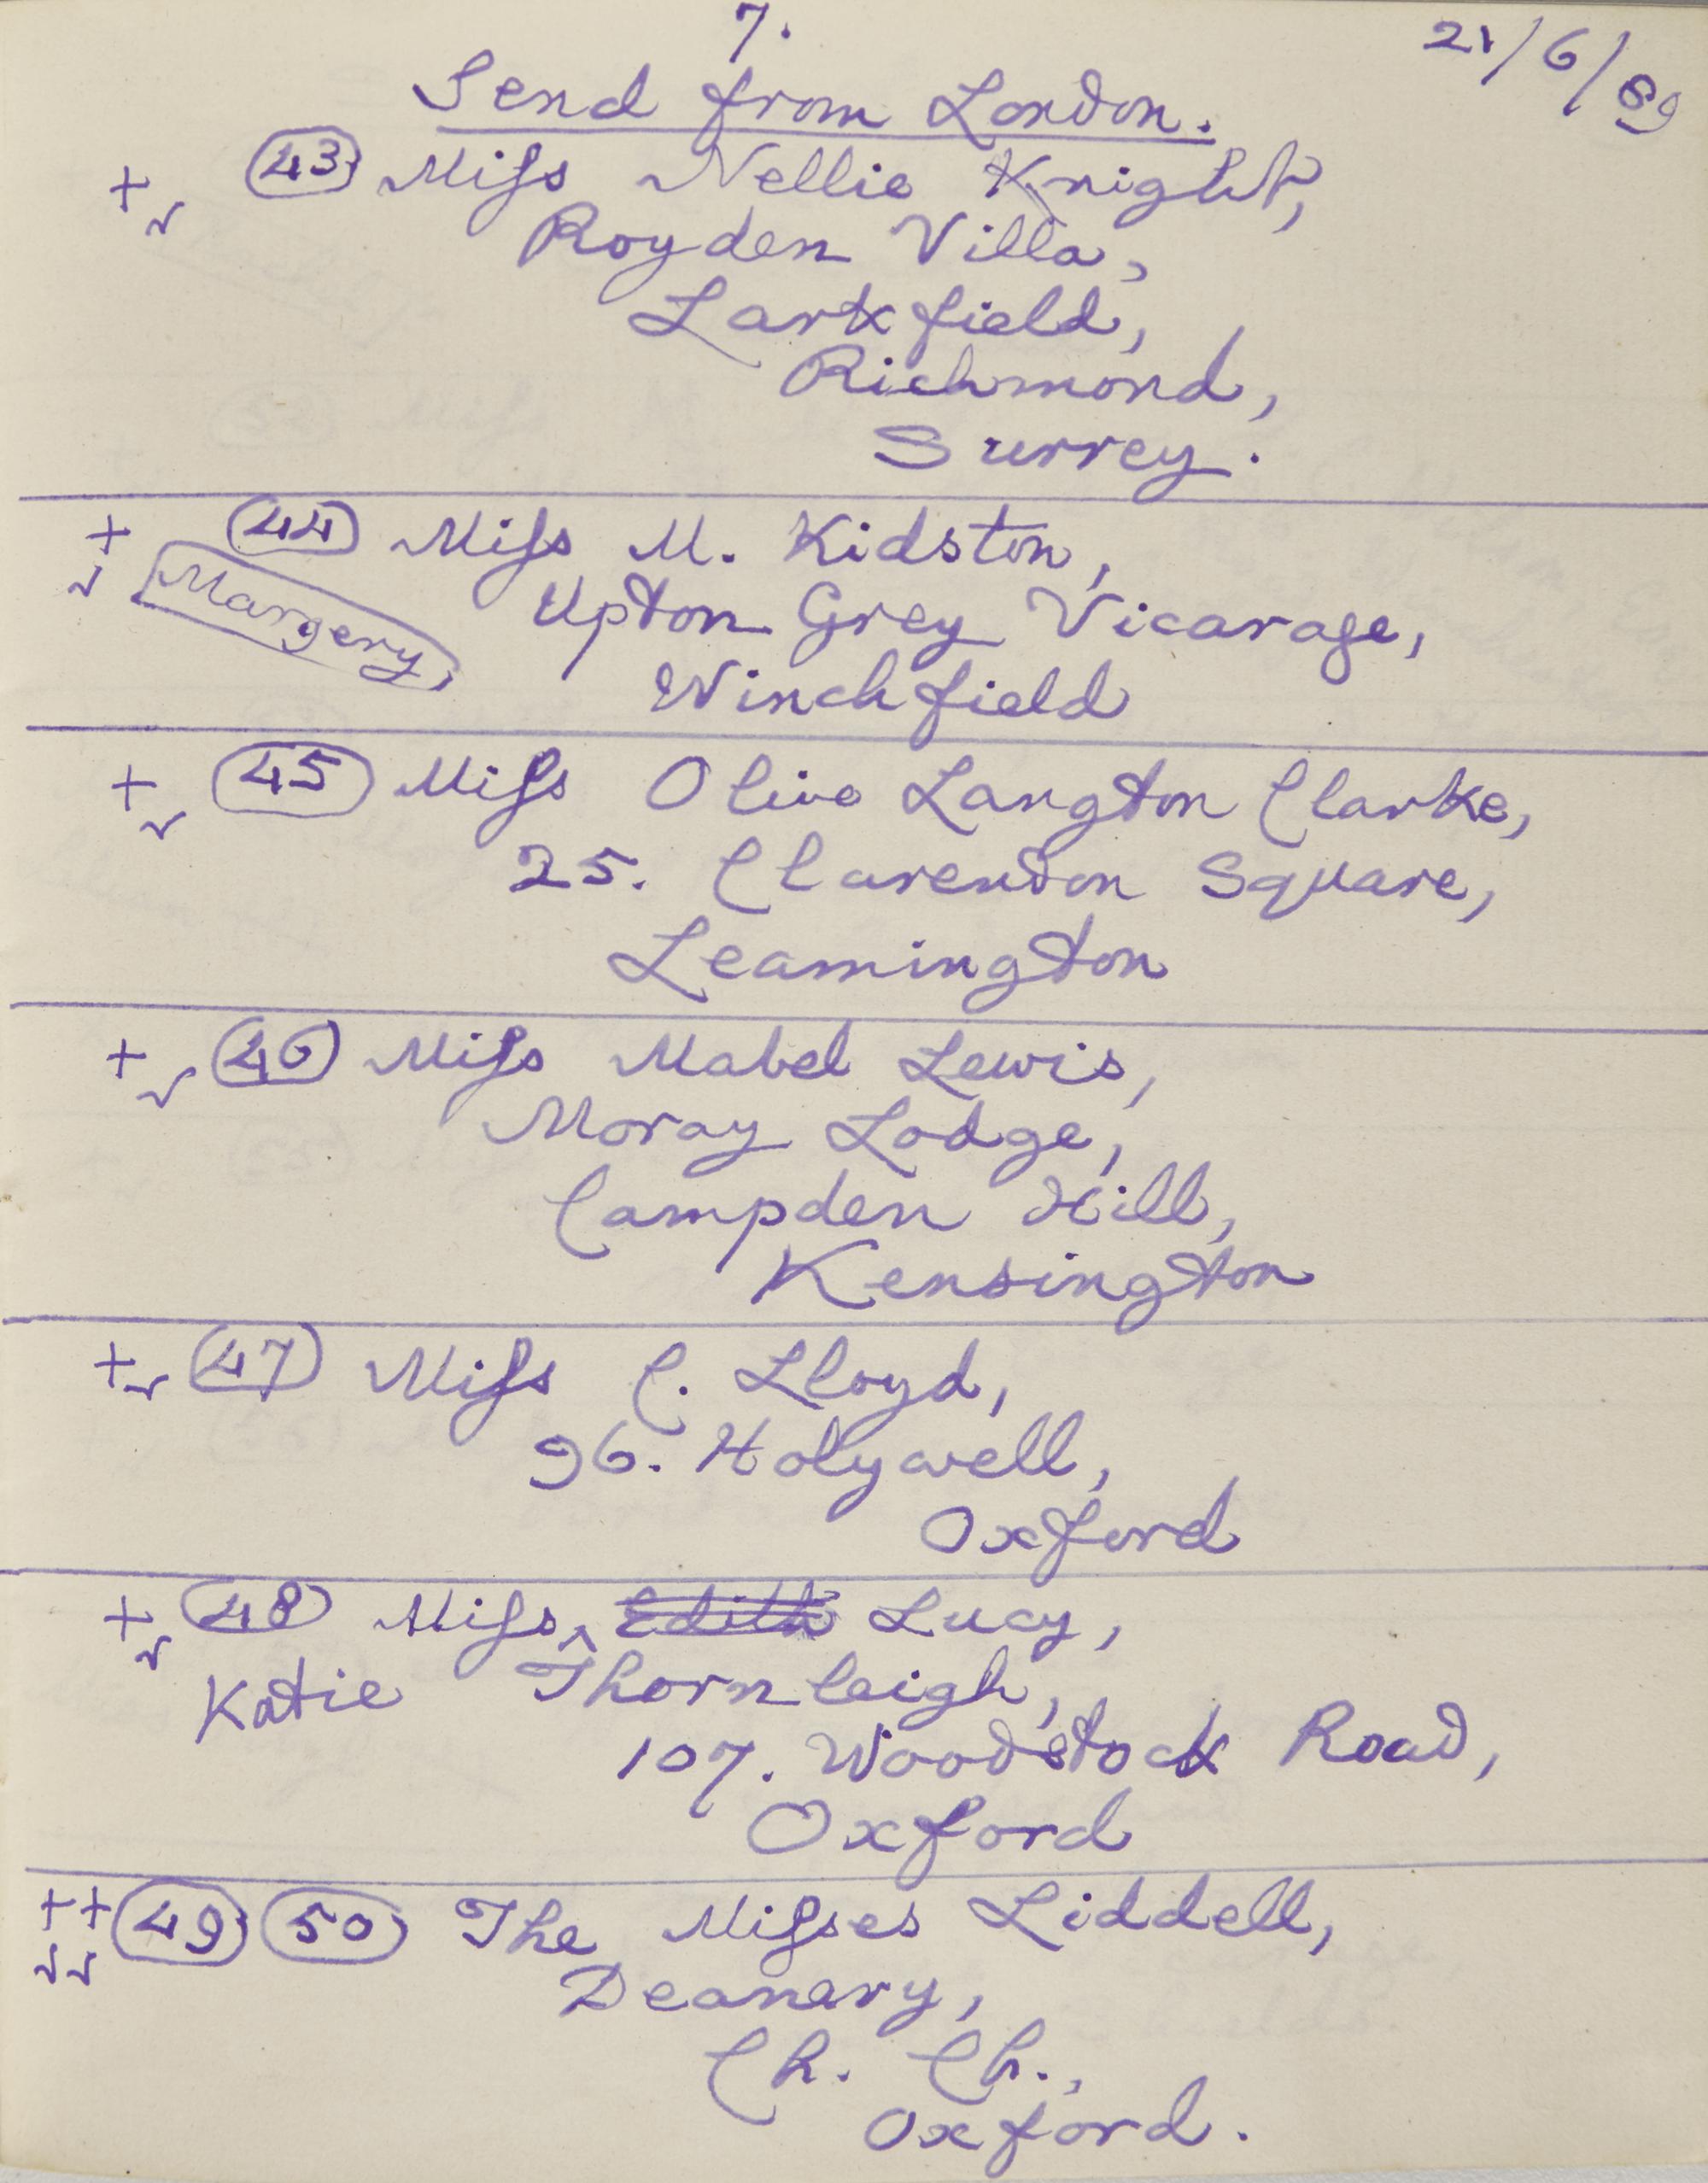 7.
21/6/89
Send from London.
+ ✓ 43 Miſs Nellie Knight,
Royden Villa,
Larkfield,
Richmond,
Surrey.
+ ✓ 44 Miſs M. Kidston,
Margery
Upton Grey Vicarage,
Winchfield
+ ✓ 45 Miſs Olive Langton Clarke,
25. Clarendon Square,
Leamington
+ ✓ 46 Miſs Mabel Lewis,
Moray Lodge,
Campden Hill,
Kensington
+ ✓ 47 Miſs C. Lloyd,
96. Holywell,
Oxford
+ ✓ 48 Miſs ^ Edith Lucy,
Katie Thornleigh,
107. Woodstock Road,
Oxford
++ ✓✓ 49 50 The Miſses Liddell,
Deanery,
Ch. Ch.,
Oxford.